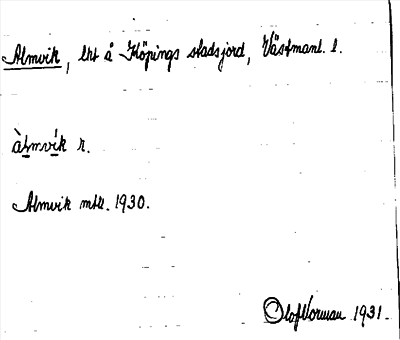 Almvik, lht å Köpings stadsjord, Västmanl. l.
àlmvík r.
Almvik mtll. 1930.
Olof Norman 1931.